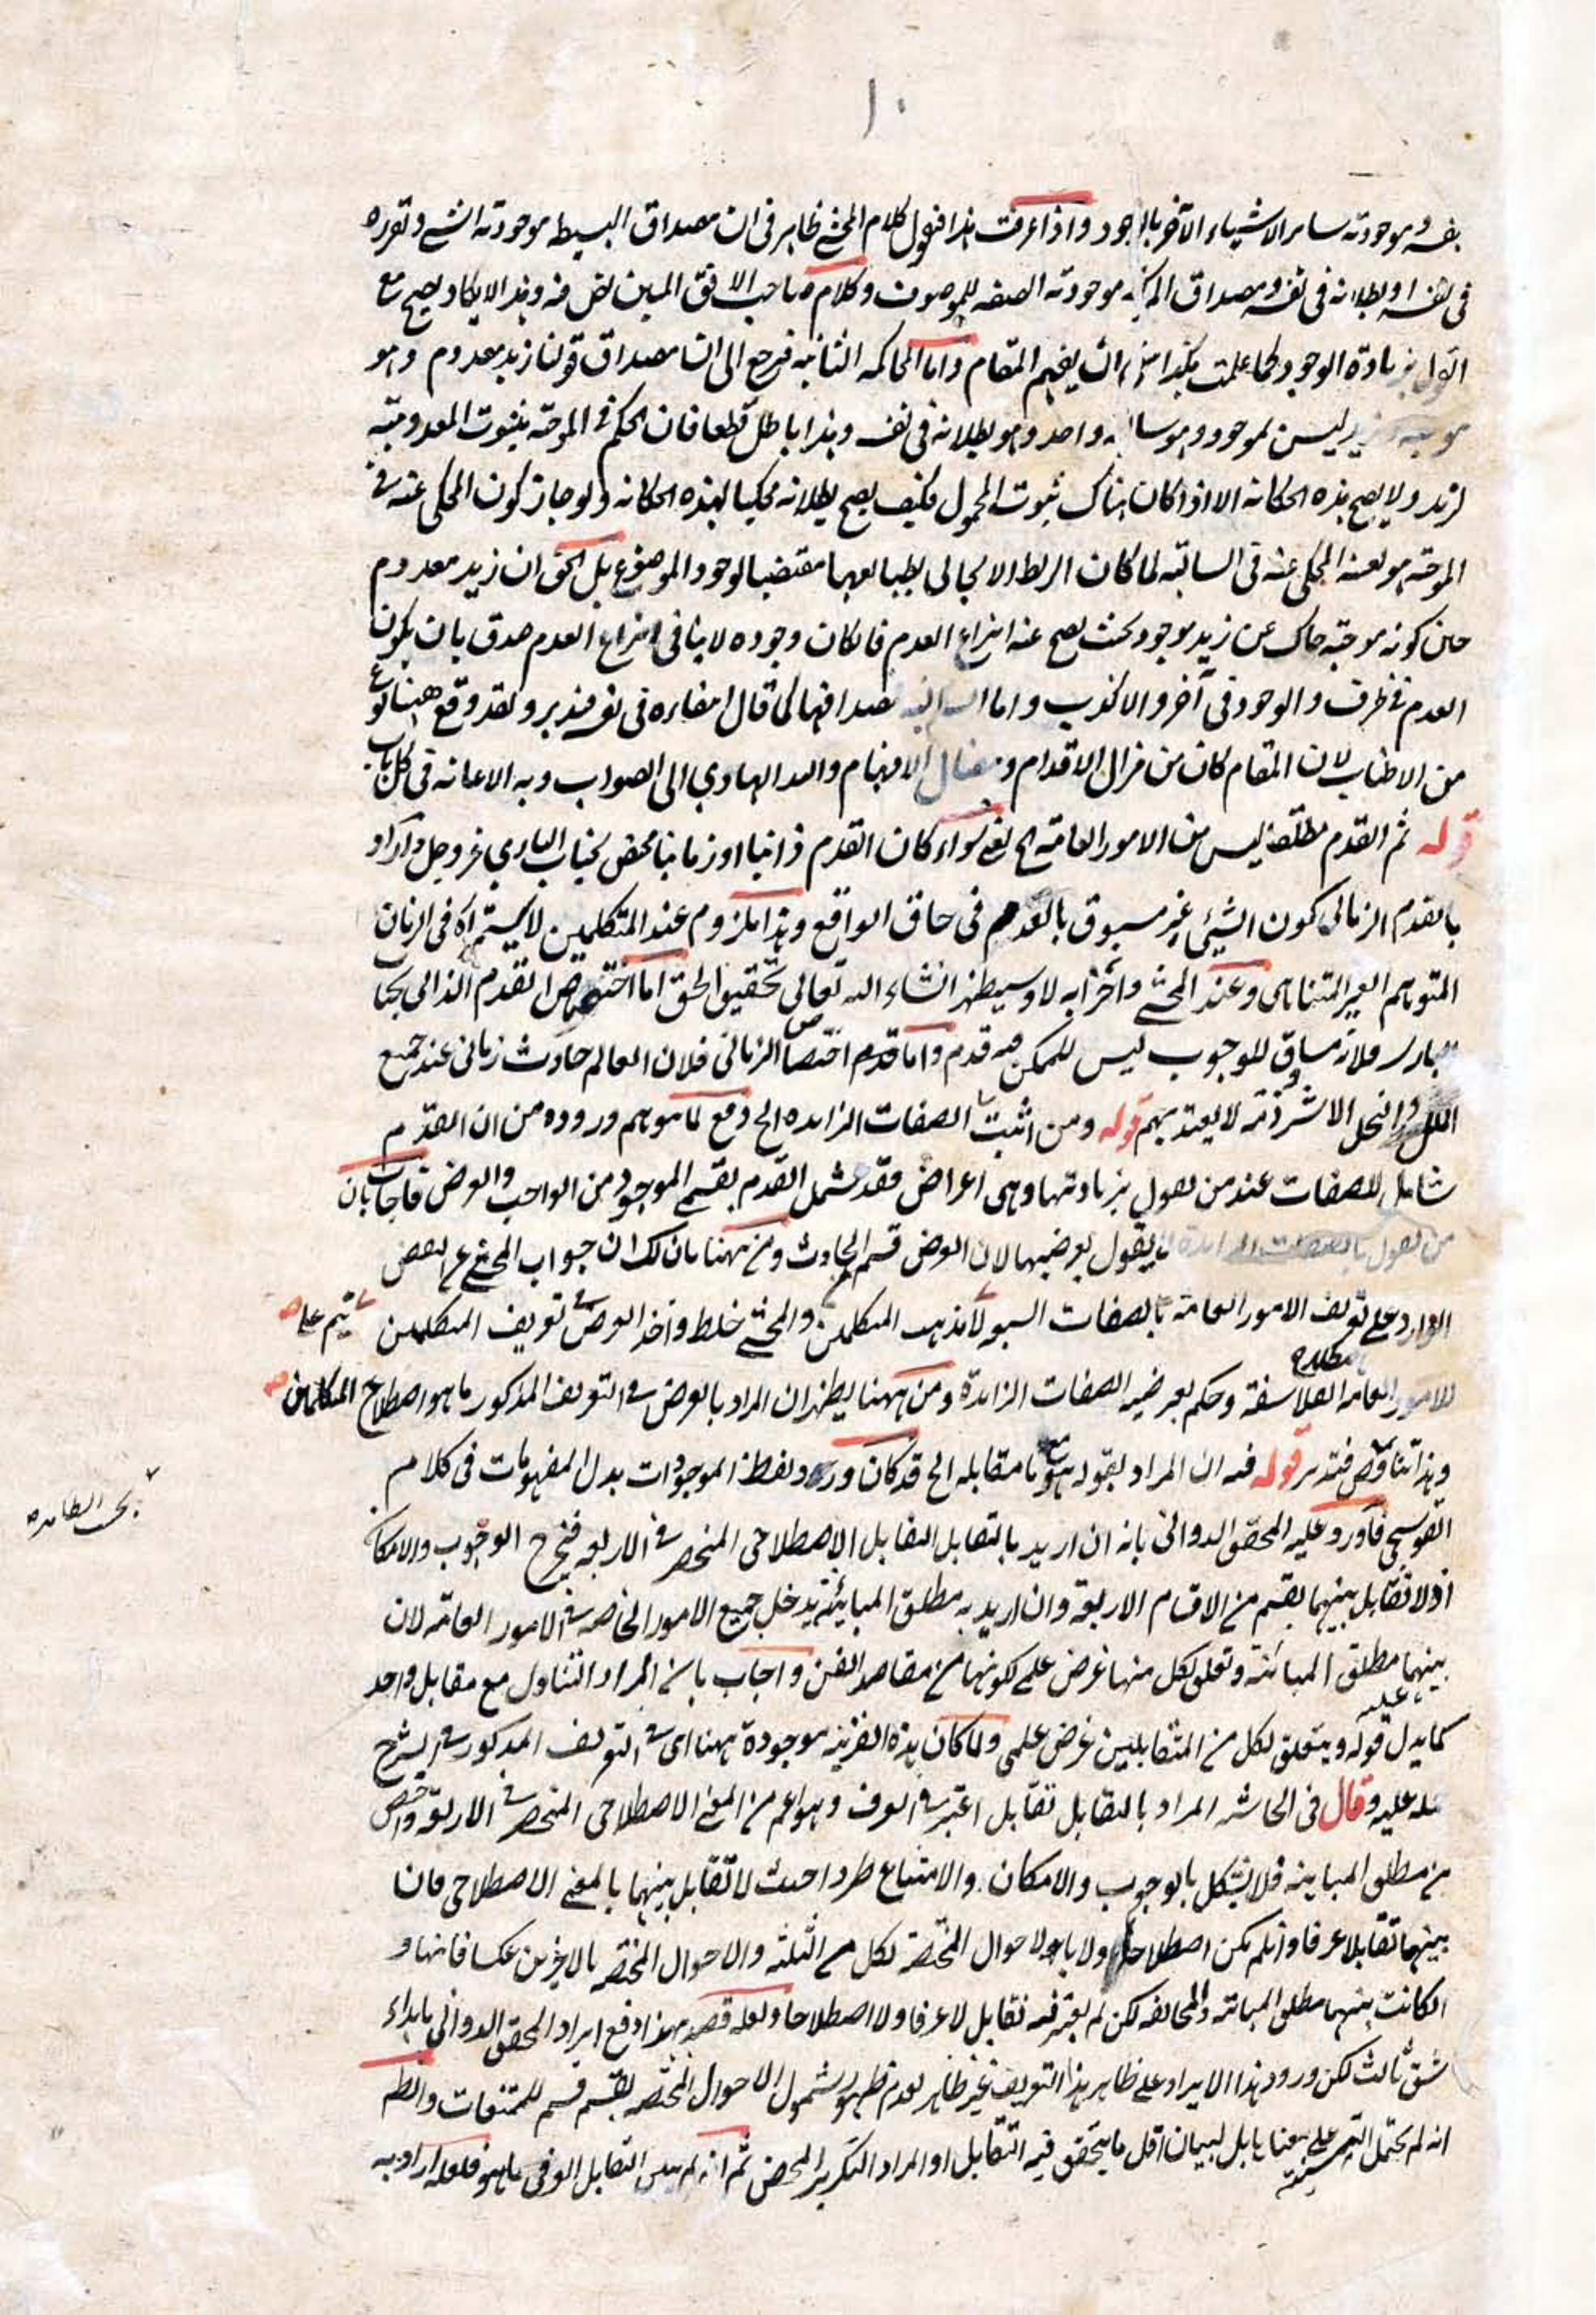 ١٠
بنفسه وموجودية ساير الاشياء الآخر بالوجود واذا عرفت هذا فنقول كلام المحشى ظاهر فى ان مصداق البسيط موجودية الشئ وتقرره
فى نفسه او بطلانه فى نفسه ومصداق المركبة موجودية الصفة للموصوف وكلام صاحب الافق المبين نص فيه وهذا لا يكاد يصح مع
القول بزيادة الوجود كما علمت هكذا ان يفهم المقام واما المحاكمة الثانية فيرجع الى ان مصداق قولنا زيد معدوم وهو
موجبة زيد ليس بموجود وهو سالبة واحد وهو بطلانه فى نفسه وهذا باطل قطعا فان الحكم فى الموجبة بثبوت المعدومية
لزيد ولا يصح هذه الحكاية الا اذا كان هناك ثبوت المحمول فكيف يصح بطلانه محكيا لهذه الحكاية ولو جاز كون المحكى عنه فى
الموجبة هو بعينه المحكى عنه فى السالبة لما كان الربط الايجابى بطبيا مقتضيا لوجود الموضوع بل الحق ان زيد معدوم
حين كونه موجبة حاك عن زيد موجود بحيث يصح عنه انتزاع العدم فان كان وجوده لا ينافى انتزاع العدم صدق بان يكون
العدم فى ظرف والوجود فى آخر والا كذب واما السالبة فمصداقها كما قال مفاده فى نفسه فتدبر ولقد وقع ههنا نوع
من الاطناب لان المقام كان من مزال الاقدام ومضال الافهام والله الهادي الى الصواب وبه الاعانة فى كل باب
قوله ثم القدم مطلقا ليس من الامور العامة الخ يعنى سواء كان القدم ذاتيا او زمانيا مختص بجناب الباري عز وجل واراد
بالقدم الزمانى كون الشيئ غير مسبوق بالعدم فى حاق الواقع وهذا ملزوم عند المتكلمين لاستمراه فى الزمان
المتوهم الغير المتناهى وعند المحشى واحزابه لا وسيظهر انشاء الله تعالى تحقيق الحق اما اختصاص القدم الذاتى بجنا
الباري فلانه مساوق للوجوب ليس للممكن فيه قدم واما قدم اختصاص الزمانى فلان العالم حادث زمانى عند جميع
الملل والنحل الا شرذمة لا يعتد بهم قوله ومن اثبت الصفات الزايده الخ دفع لما يوهم وروده من ان القدم
شامل للصفات عند من يقول بزيادتها وهى اعراض فقد شمل القدم بقسمى الموجود من الواجب والعرض فاجاب بان
من يقول بالصفات الزايدة لا يقول بعرضيتها لان العرض قسم الحادث ومن ههنا بان لك ان جواب المحشى عن النقض
الوارد على تعريف الامور العامة بالصفات السبع لا يتم على مذهب المتكلمين والمحشى خلط واخذ العرض فى تعريف المتكلمين
للامور العامة باصطلاح الفلاسفة وحكم بعرضية الصفات الزايدة ومن ههنا يظهر ان المراد بالعرض فى التعريف المذكور ما هو اصطلاح المتكلمين
وهذا تناقض فتدبر قوله فيه ان المراد بقوله هو مع ما مقابله الخ قد كان ورد ولفظ الموجودات بدل المفهومات فى كلام
القوسجى فاورد عليه المحقق الدوانى بانه ان اريد بالتقابل التقابل الاصطلاحى المنحصر فى الاربعة فيخرج الوجوب والامكا
اذ لا تقابل بينهما بقسم من الاقسام الاربعة وان اريد به مطلق المباينة يدخل جميع الامور الخاصة فى الامور العامة لان
بينهما مطلق المباينة وتعلق لكل منها غرض علمى لكونها من مقاصد الفن واجاب بان المراد التناول مع مقابل واحد
كما يدل عليه قوله ويتعلق لكل من المتقابلين غرض علمى ولما كان هذه القرينة موجودة ههنا اى فى التعريف المذكور فى الشرح
عليه وقال فى الحاشية المراد بالتقابل تقابل اعتبر فى العرف وهو اعم من المعنى الاصطلاحى المنحصر فى الاربعة واخص
من مطلق المباينة فلا يشكل بالوجوب والامكان والامتناع طردا حيث لا تقابل بينهما بالمعنى الاصطلاحى فان
بينهما تقابلا عرفا وان لم يكن اصطلاحا ولا بالاحوال المختصة لكل من الثلثة والاحوال المختصة بالاخيرين عكسا فانها و
ان كانت بينهما مطلق المباينة والمخالفة لكن لم يعتبر فيه تقابل لا عرفا ولا اصطلاحا ولعله قصد بهذا دفع ايراد المحقق الدوانى بابداء
شق ثالث لكن ورود هذا الايراد على ظاهر هذا التعريف غير ظاهر لعدم ظهور شمول الاحوال المختصة بقسم قسم للمتنفات والظ
انه لم يحتمل التثنية على معناها بل لبيان اقل ما يتحقق فيه التقابل او المراد التكرير المحض ثم انه لم يبين التقابل العرفى ما هو فلعله اراد به